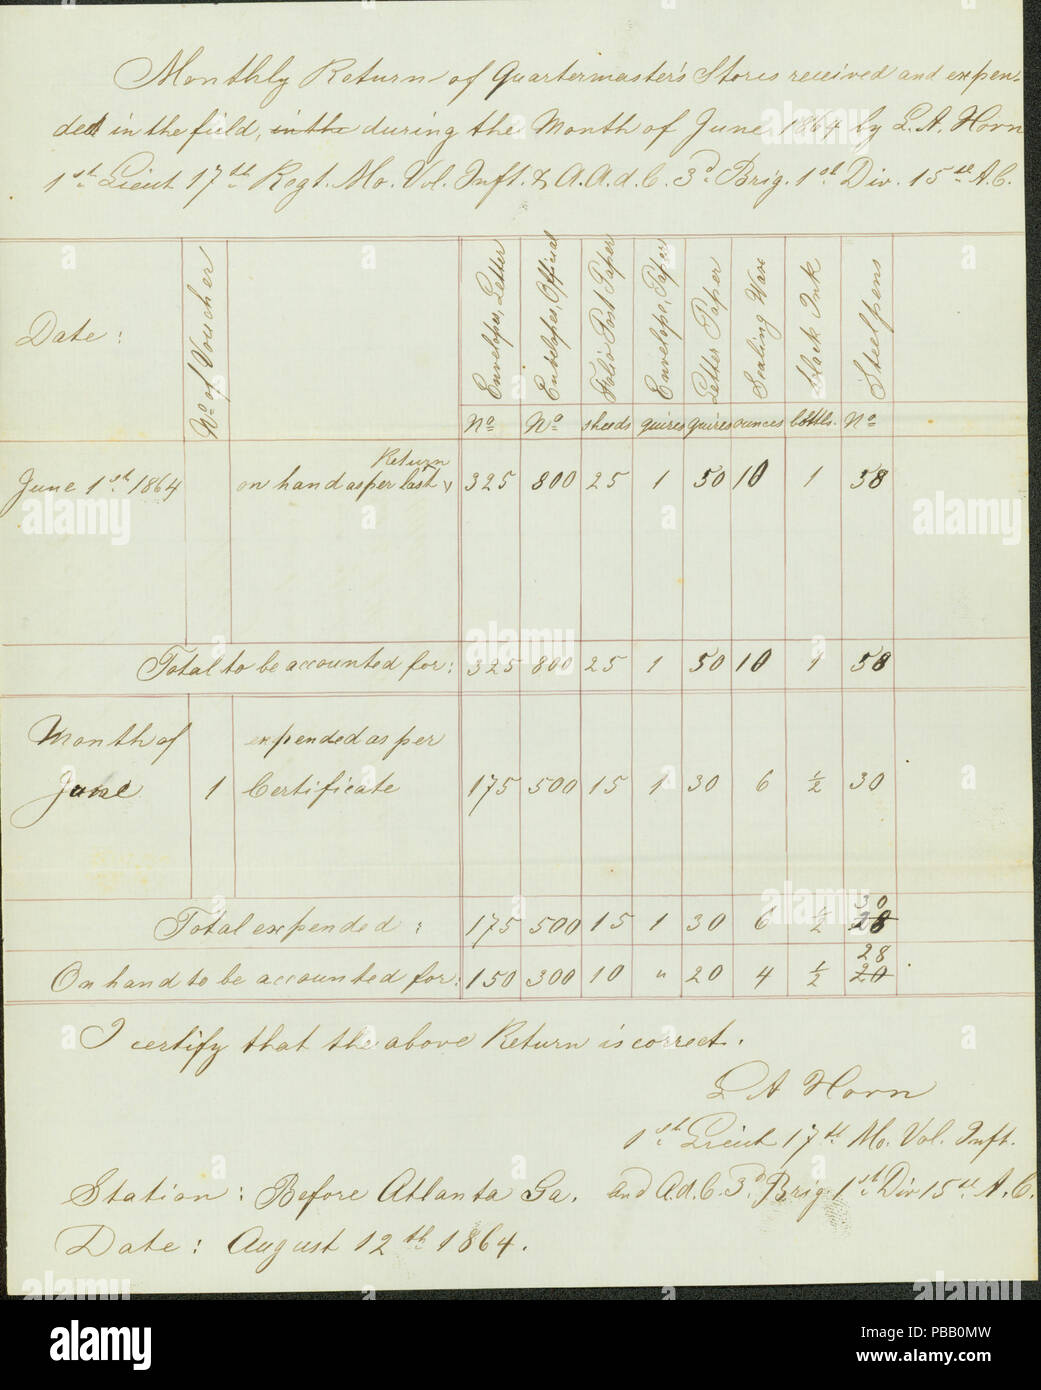 Monthly Return of Quartermaster's Stores received and expen-
ded in the field, in the during the Month of June 1864 by L. A. Horn
1st Lieut 17th Regt. Mo. Vol. Inft. & A. A. d. C. 3d Brig. 1st Div. 15th A. C.
Date: No of Voucher Envelopes, Letter Envelopes, Official Folio Post Paper Envelope, Paper Letter Paper Sealing Wax black Ink Steelpens
No No sheeds quires quires ounces bottls. No
Return
June 1st 1864 on hand as per last 325 800 25 1 50 10 1 58
Total to be accounted for: 325 800 25 1 50 10 1 58
Month of expended as per
June 1 Certificate 175 500 15 1 30 6 ½ 30
30
Total expended: 175 500 15 1 30 6 ½ 28
28
On hand to be accounted for: 150 300 10 " 20 4 ½ 20
I certify that the above Return is correct.
L A Horn
1st Lieut 17th Mo. Vol. Inft.
Station: Before Atlanta Ga. and A. d. C. 3d Brig. 1st Div 15th A. C.
Date: August 12th 1864.
alamy
alamy
Image ID: PBB0MW
www.alamy.com